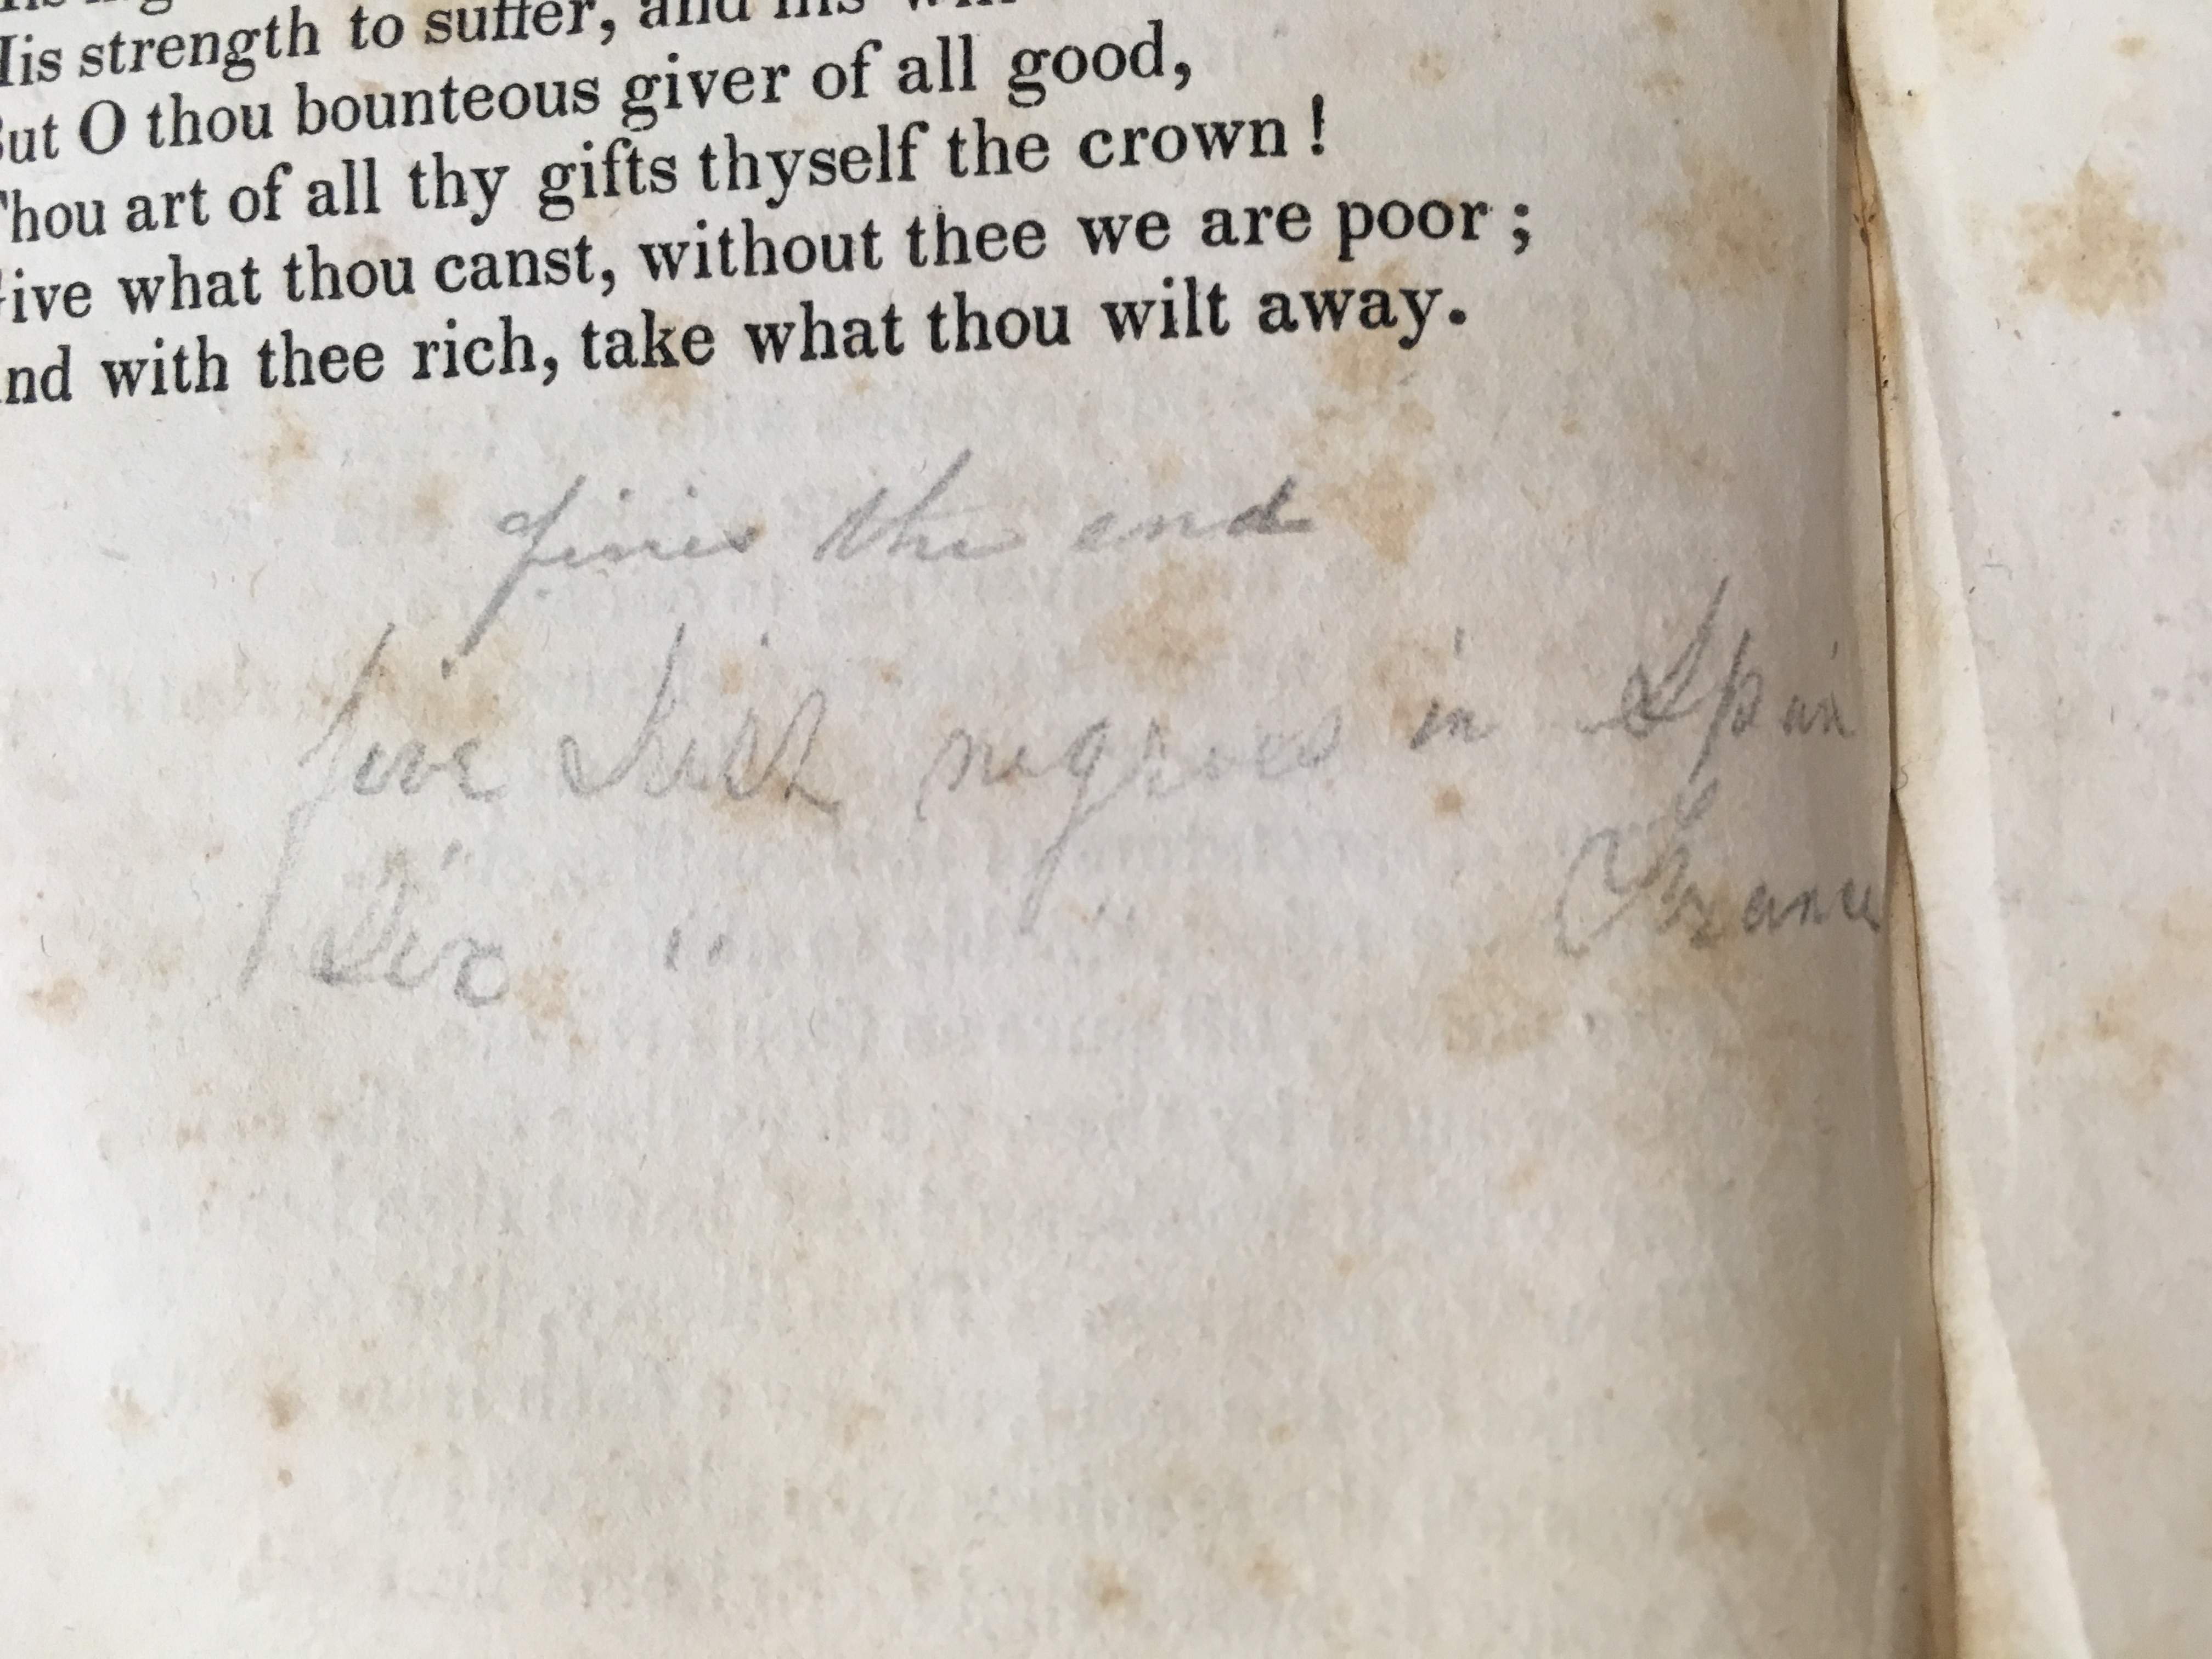 His strength to suffer, and his will
But O thou bounteous giver of all good,
Thou art of all thy gifts thyself the crown !
Give what thou canst, without thee we are poor ;
And with thee rich, take what thou wilt away.
finis the end
five Irish negroes in Spain
Six " " France